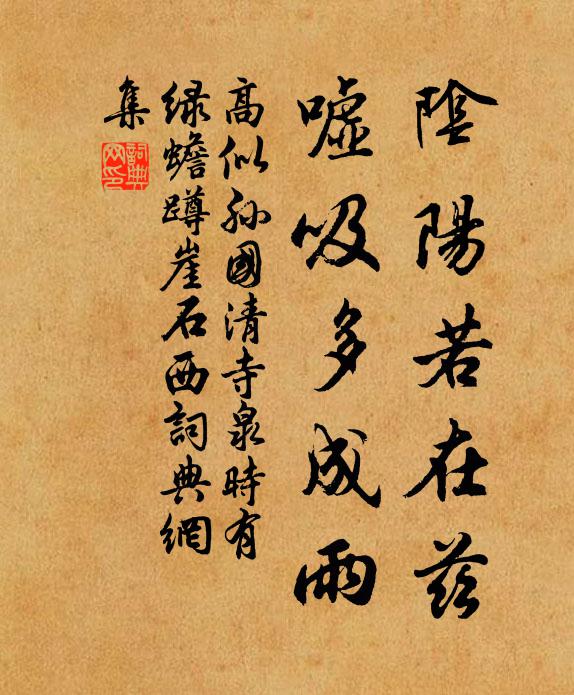 陰陽若在茲
嘘吸多成雨
高似孙國清寺泉時有
緑蟾蹲崖石西詞典網
集